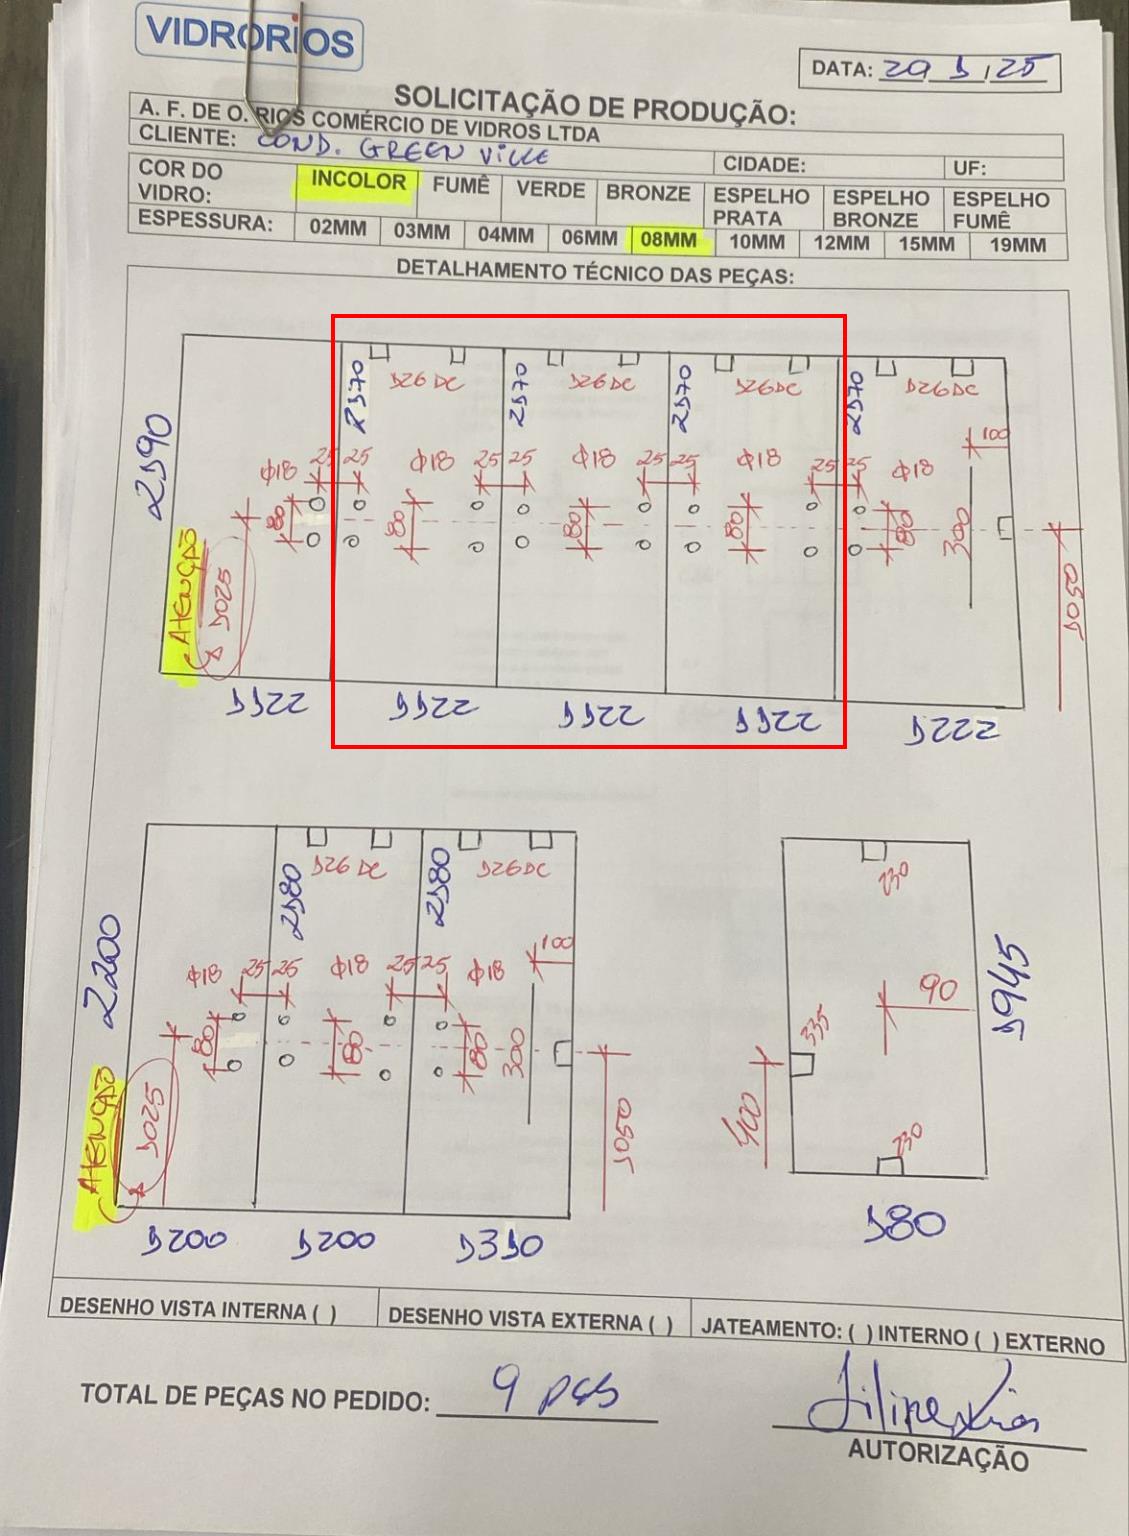 VIDRORIOS
DATA: 29, 1, 25
SOLICITAÇÃO DE PRODUÇÃO:
A. F. DE O. RIOS COMÉRCIO DE VIDROS LTDA
CLIENTE: COND. GREEN VILLE
CIDADE: UF:
COR DO VIDRO: INCOLOR FUMÊ VERDE BRONZE ESPELHO PRATA ESPELHO BRONZE ESPELHO FUMÊ
ESPESSURA: 02MM 03MM 04MM 06MM 08MM 10MM 12MM 15MM 19MM
DETALHAMENTO TÉCNICO DAS PEÇAS:
2190 2170 2170 2170 2170
126 DC 126 DC 126 DC 126 DC
100
Φ18 25 25 Φ18 25 25 Φ18 25 25 Φ18 25 25 Φ18
80 80 80 80 80 300
ATENÇÃO 1025 1050
1122 1122 1122 1122 1222
2200 2180 2180
126 DC 126 DC
100
Φ18 25 25 Φ18 25 25 Φ18
80 80 80 300
ATENÇÃO 1025 1050
1200 1200 1310
230
90
1945
335
400
230
180
DESENHO VISTA INTERNA ( ) DESENHO VISTA EXTERNA ( ) JATEAMENTO: ( ) INTERNO ( ) EXTERNO
TOTAL DE PEÇAS NO PEDIDO: 9 pçs
AUTORIZAÇÃO